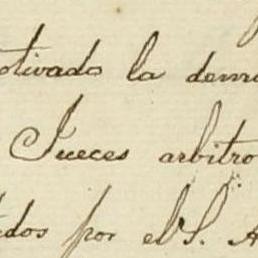 otivado la dem
Jueces arbitro
dos por el S. A